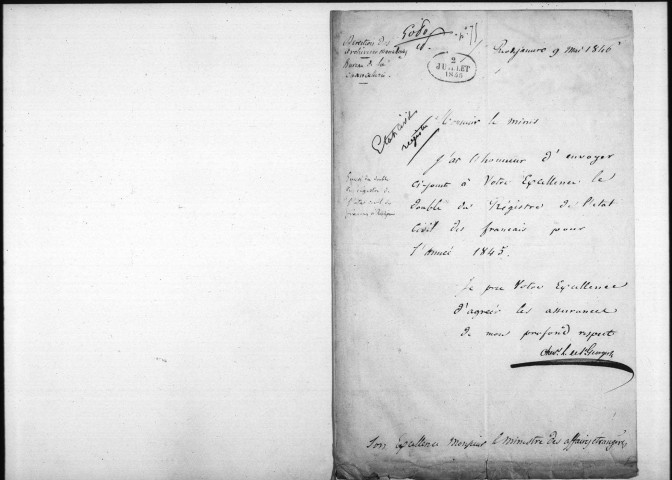 Direction des
archives
Bureau de la
Chancellerie
Rio de janeiro 9 Mai 1846
2
JUILLET
1846
Etat civil
registre
Monsieur le minis
J'ai l'honneur d'envoyer
ci-joint à Votre Excellence le
double du Régistre de l'etat
Civil des français pour
l'Année 1845.
Envoi du double
du registre de
l'état civil des
français
Je prie Votre Excellence
d'agréer les assurances
de mon profond respect
Son excellence Monsieur le ministre des affaires étrangères